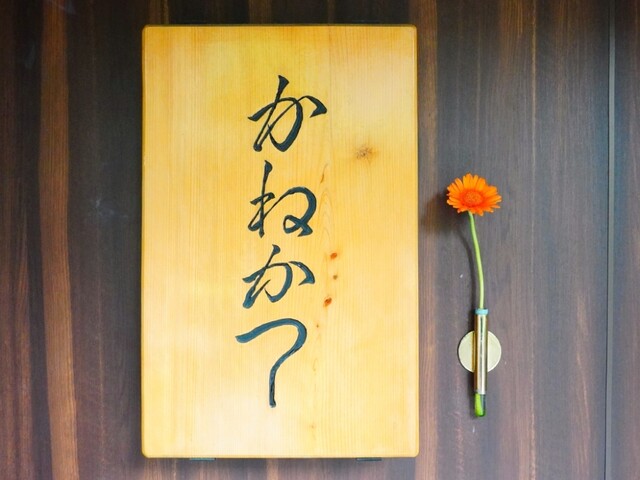 かねかつ